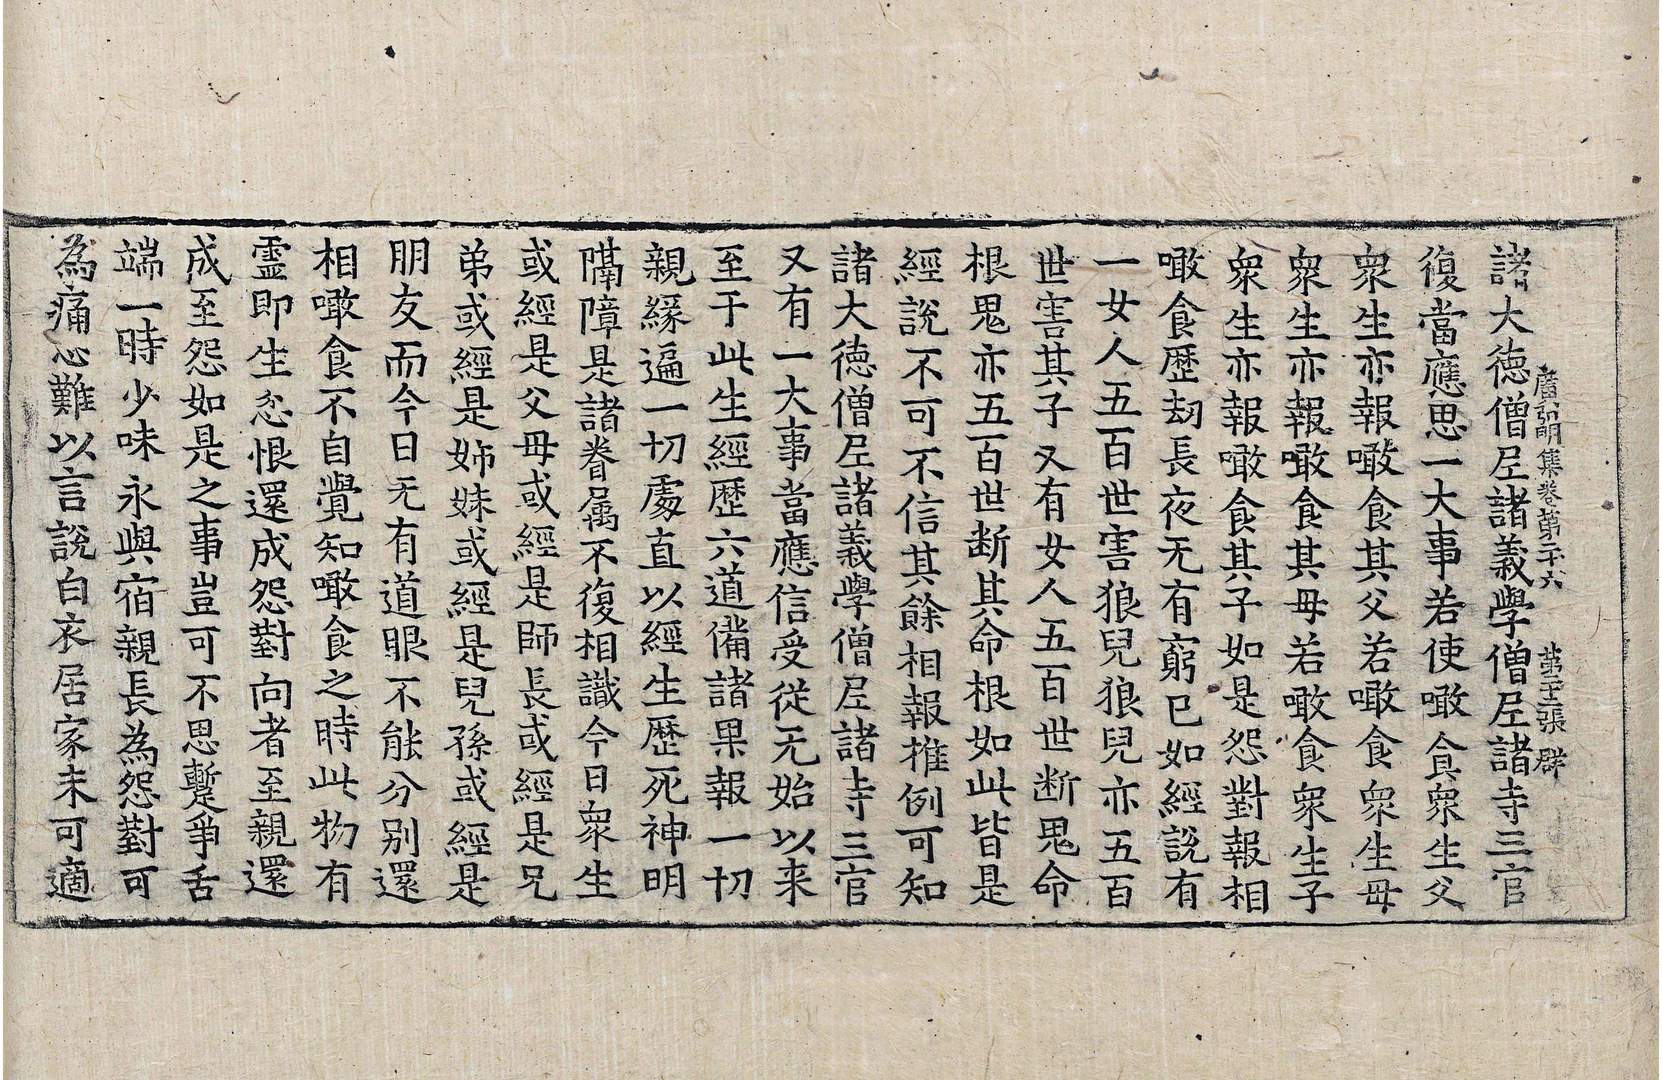 廣弘明集卷第二十六 第三張 群
諸大德僧尼諸義學僧尼諸寺三官
復當應思一大事若使噉食衆生父
衆生亦報噉食其父若噉食衆生母
衆生亦報噉食其母若噉食衆生子
衆生亦報噉食其子如是怨對報相
噉食歷劫長夜无有窮已如經說有
一女人五百世害狼兒狼兒亦五百
世害其子又有女人五百世斷鬼命
根鬼亦五百世斷其命根如此皆是
經說不可不信其餘相報推例可知
諸大德僧尼諸義學僧尼諸寺三官
又有一大事當應信受從无始以来
至于此生經歷六道備諸果報一切
親緣遍一切處直以經生歷死神明
隔障是諸眷屬不復相識今日衆生
或經是父母或經是師長或經是兄
弟或經是姉妹或經是兒孫或經是
朋友而今日无有道眼不能分别還
相噉食不自覺知噉食之時此物有
靈即生忿恨還成怨對向者至親還
成至怨如是之事豈可不思蹔爭舌
端一時少味永與宿親長為怨對可
為痛心難以言說白衣居家未可適